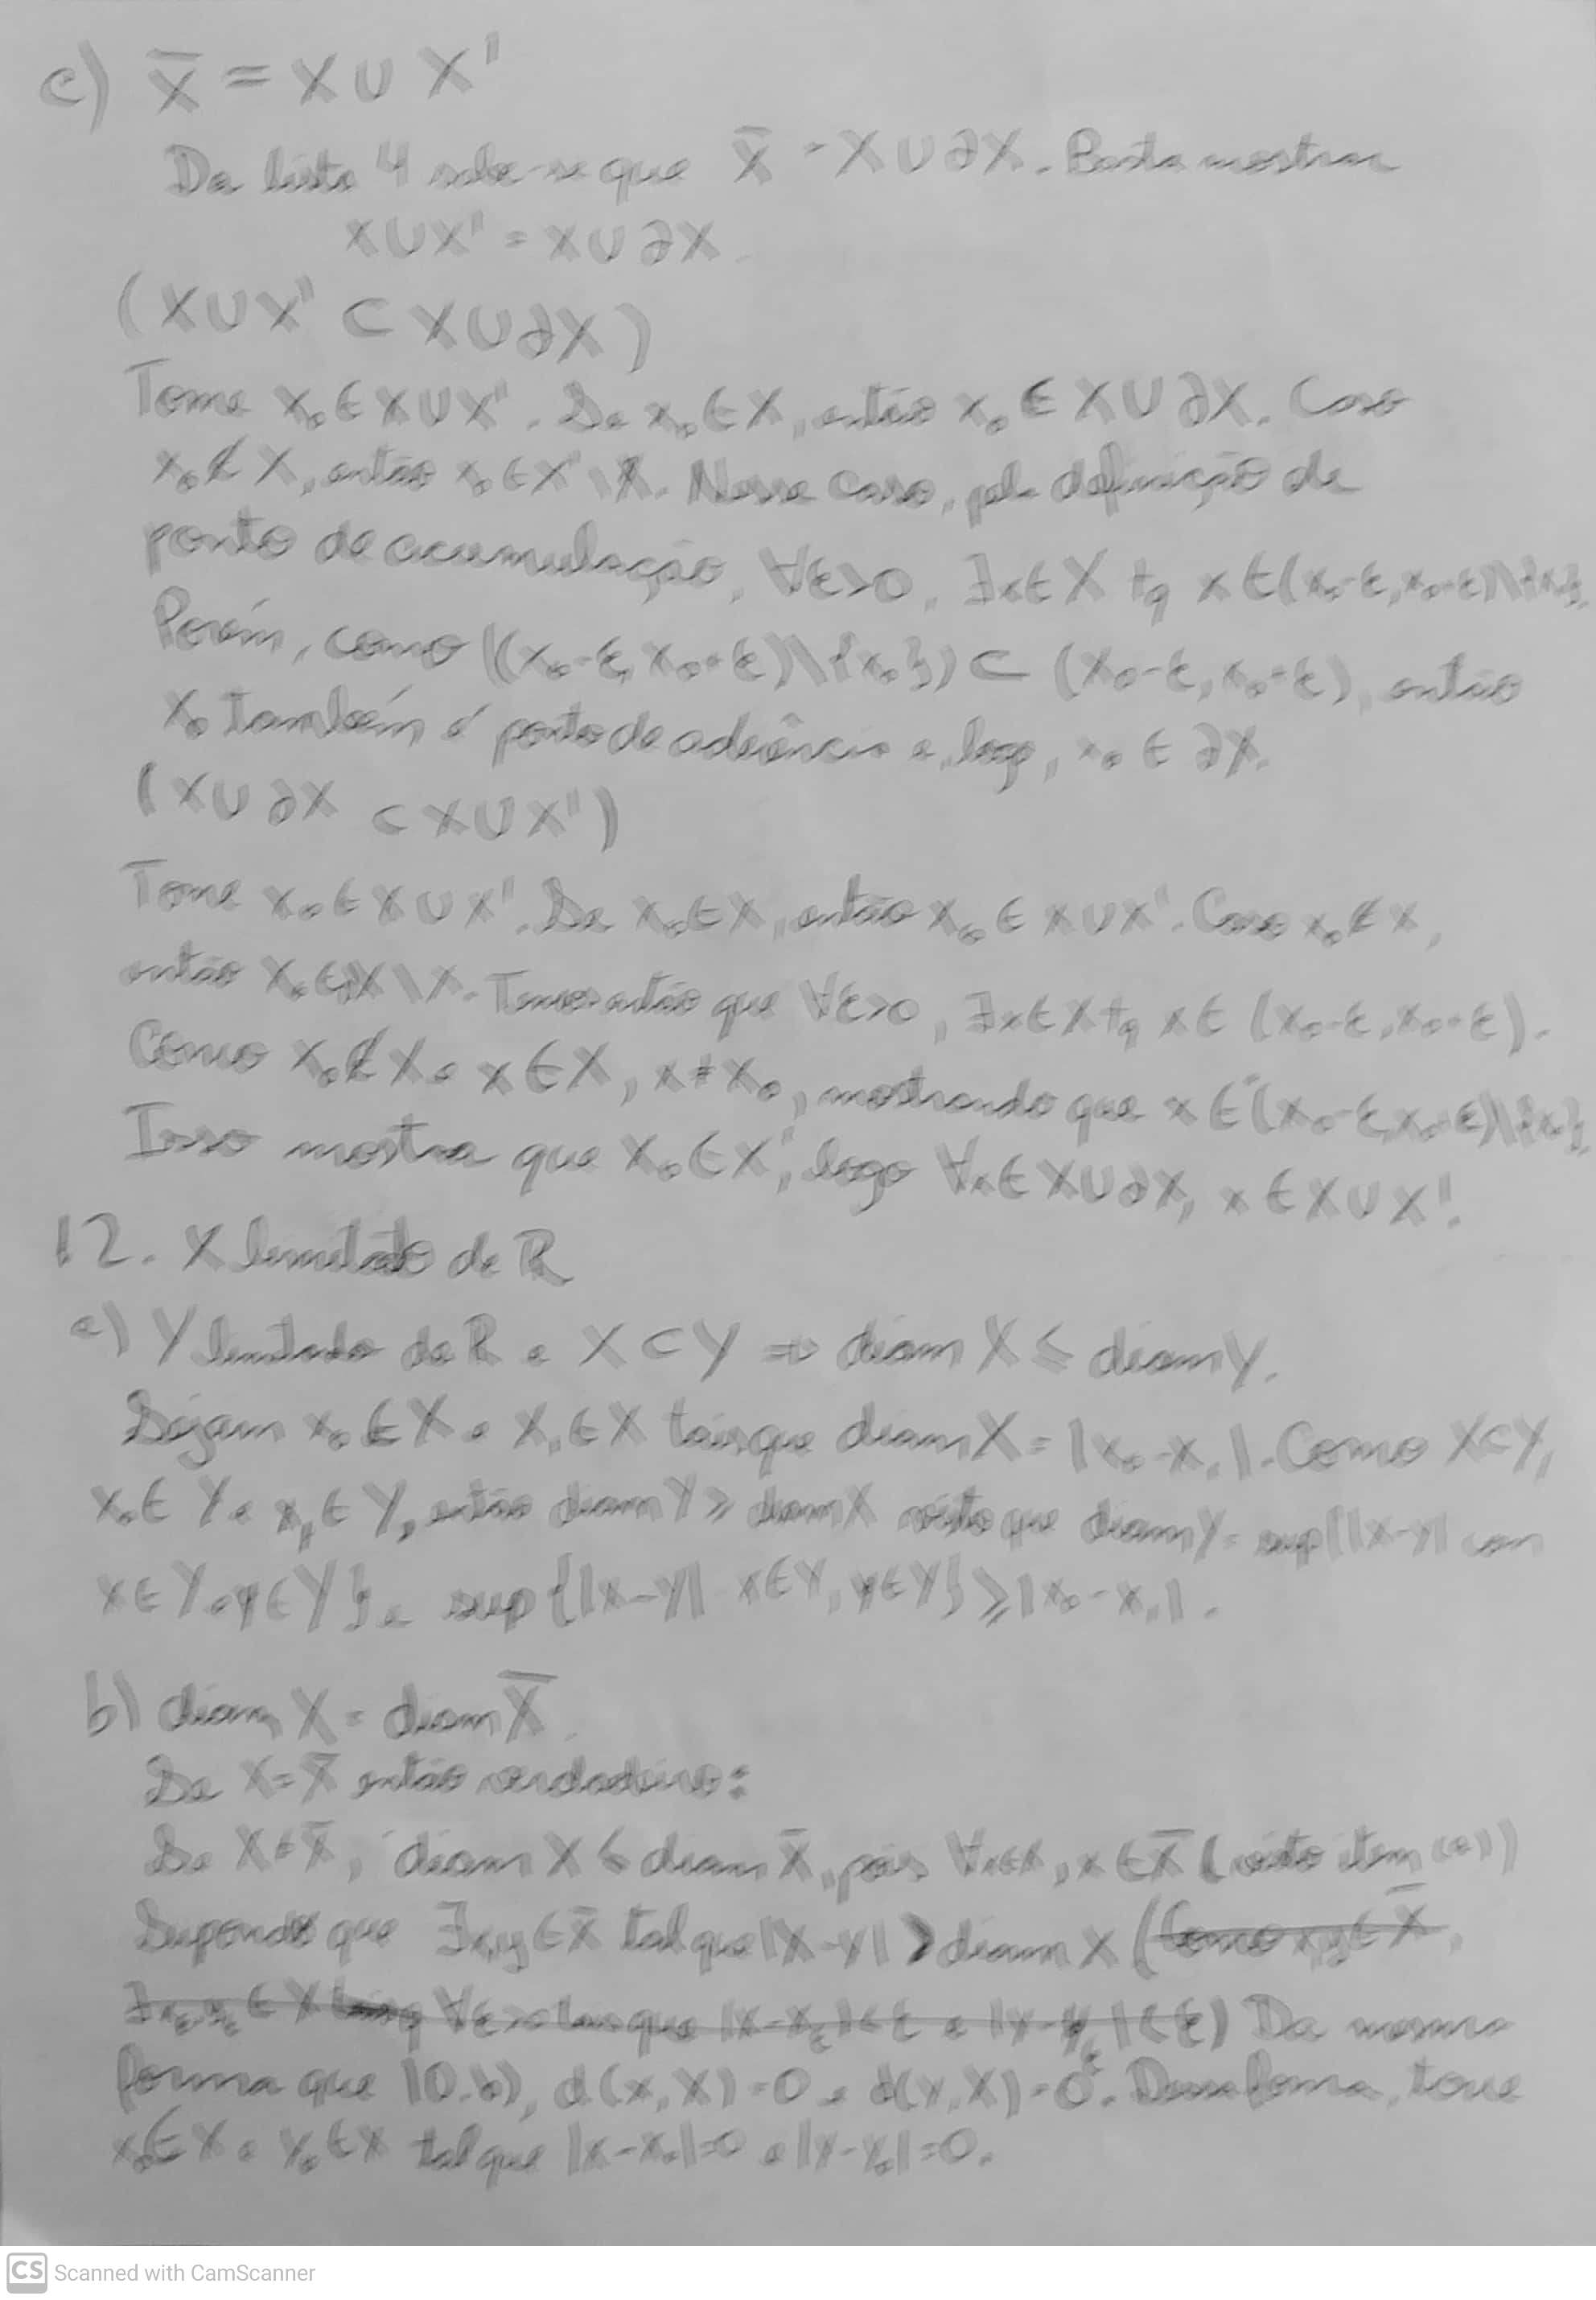 c) X̄ = X ∪ X'
Da lista 4 sabe-se que X̄ = X ∪ ∂X. Basta mostrar
X ∪ X' = X ∪ ∂X.
(X ∪ X' ⊂ X ∪ ∂X)
Tome x₀ ∈ X ∪ X'. Se x₀ ∈ X, então x₀ ∈ X ∪ ∂X. Caso
x₀ ∉ X, então x₀ ∈ X' \ X. Nesse caso, pela definição de
ponto de acumulação, ∀ε>0, ∃x ∈ X tq x ∈ (x₀-ε, x₀+ε)\{x₀}.
Porém, como ((x₀-ε, x₀+ε)\{x₀}) ⊂ (x₀-ε, x₀+ε), então
x₀ também é ponto de aderência e, logo, x₀ ∈ ∂X.
(X ∪ ∂X ⊂ X ∪ X')
Tome x₀ ∈ X ∪ X'. Se x₀ ∈ X, então x₀ ∈ X ∪ X'. Caso x₀ ∉ X,
então x₀ ∈ ∂X \ X. Temos então que ∀ε>0, ∃x ∈ X tq x ∈ (x₀-ε, x₀+ε).
Como x₀ ∉ X e x ∈ X, x ≠ x₀, mostrando que x ∈ (x₀-ε, x₀+ε)\{x₀}.
Isso mostra que x₀ ∈ X', logo ∀x ∈ X ∪ ∂X, x ∈ X ∪ X'.
12. X limitado de R
a) Y limitado de R e X ⊂ Y ⇒ diam X ≤ diam Y.
Sejam x₀ ∈ X e x₁ ∈ X tais que diam X = |x₀ - x₁|. Como X ⊂ Y,
x₀ ∈ Y e x₁ ∈ Y, então diam Y ≥ diam X visto que diam Y = sup{|x-y| com
x ∈ Y e y ∈ Y} e sup{|x-y| x ∈ Y, y ∈ Y} ≥ |x₀ - x₁|.
b) diam X = diam X̄.
Se X = X̄ então verdadeiro:
Se X ≠ X̄, diam X ≤ diam X̄, pois ∀x∈X, x ∈ X̄ (visto item (a))
Supondo que ∃x,y ∈ X̄ tal que |x-y| > diam X (Como x,y ∈ X̄,
∃xε,yε ∈ X ∀ε>0 tais que |x-xε|<ε e |y-yε|<ε) Da mesma
forma que 10.b), d(x,X)=0 e d(y,X)=0. Dessa forma, tome
x₀ ∈ X e y₀ ∈ X tal que |x-x₀|=0 e |y-y₀|=0.
CS Scanned with CamScanner